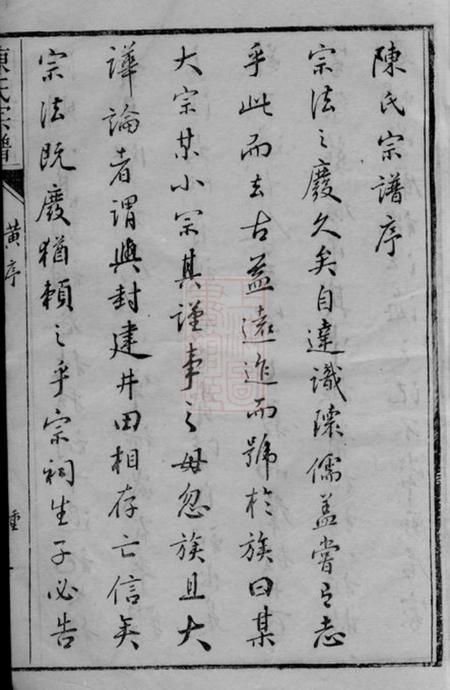 陳氏宗譜序
宗法之廢久矣自達識瓌儒蓋嘗有志
乎此而去古益遠迨而號於族曰某
大宗某小宗其謹事之毋忽族且大
譁論者謂與封建井田相存亡信矣
宗法既廢猶賴之乎宗祠生子必告
陳氏宗譜
黃序